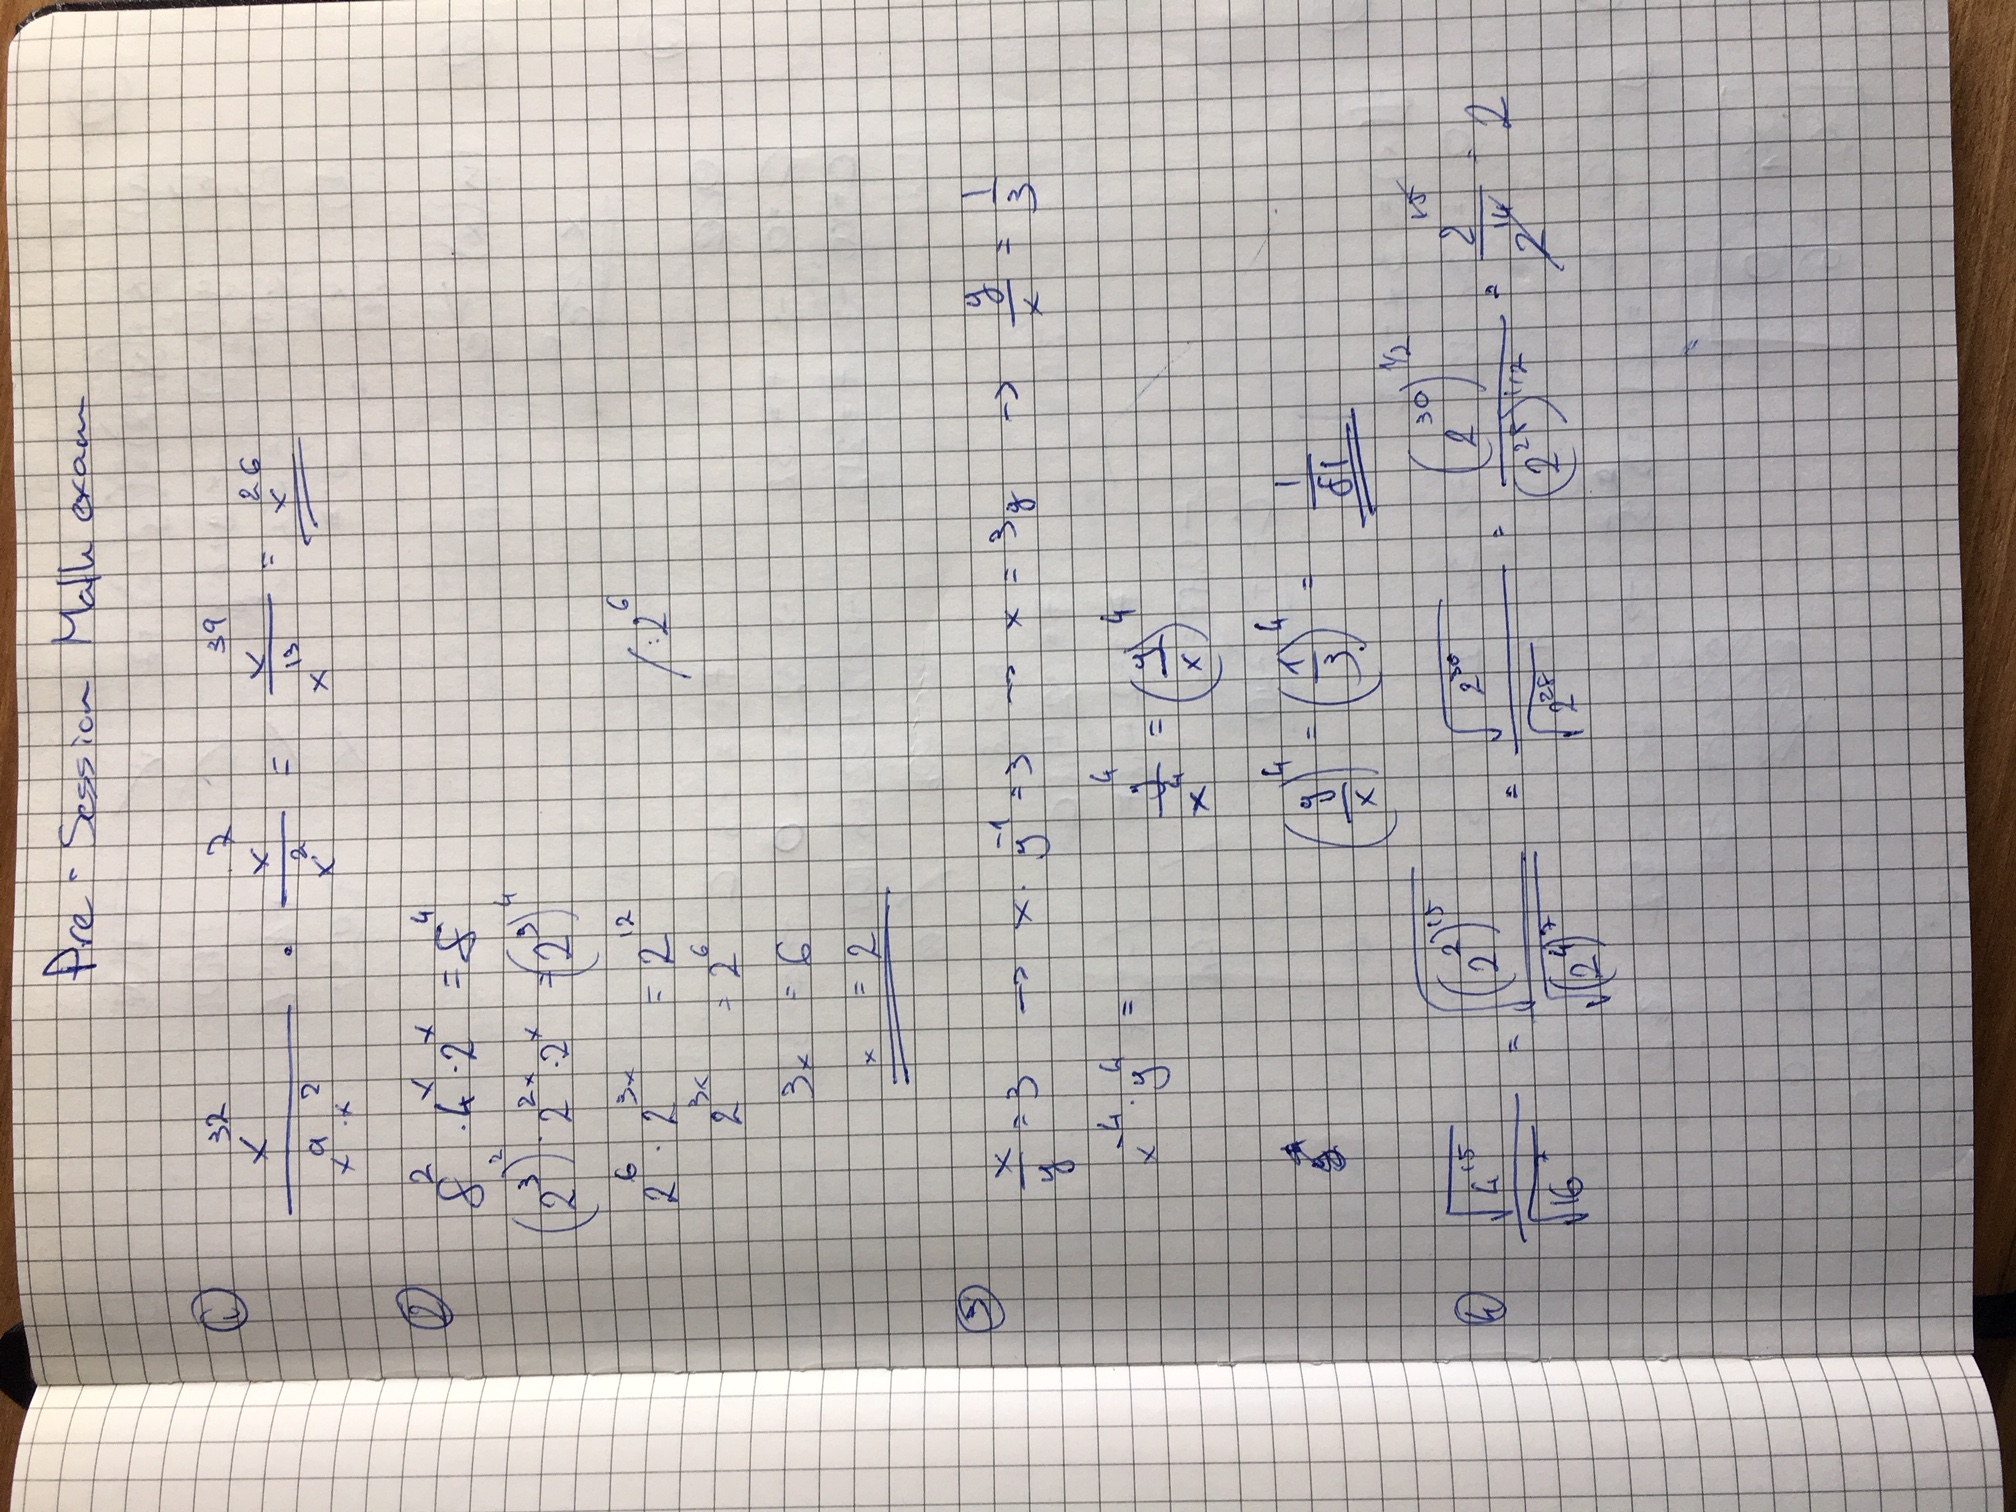 Pre-Session Math exam
① x^32 / (x^9 · x^2) · x^7 / x^2 = x^39 / x^13 = x^26
② 8^2 · 4^x · 2^x = 8^4
(2^3)^2 · 2^2x · 2^x = (2^3)^4
2^6 · 2^3x = 2^12 /:2^6
2^3x = 2^6
3x = 6
x = 2
③ x/y = 3 → x · y^-1 = 3 → x = 3y → y/x = 1/3
x^-4 · y^4 = y^4/x^4 = (y/x)^4
(y/x)^4 = (1/3)^4 = 1/81
④ √4^15 / √16^7 = √(2^2)^15 / √(2^4)^7 = √2^30 / √2^28 = (2^30)^1/2 / (2^28)^1/2 = 2^15 / 2^14 = 2